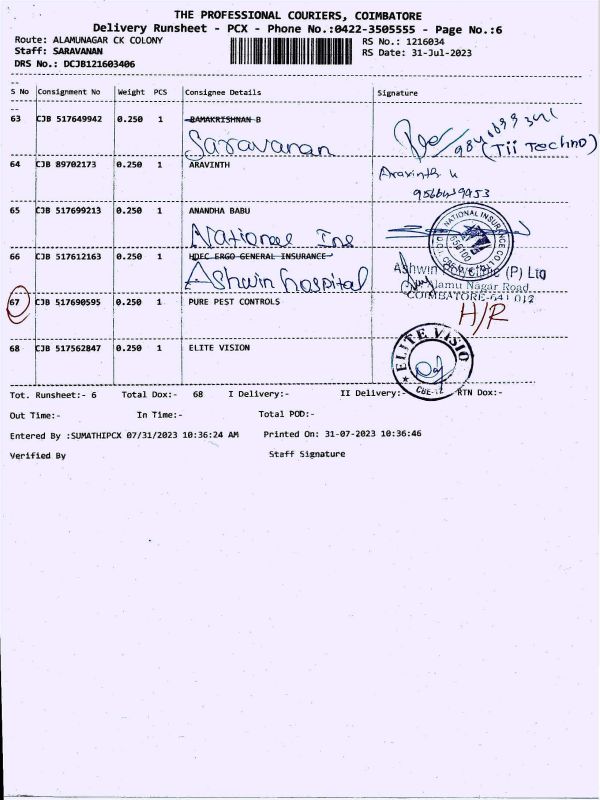 THE PROFESSIONAL COURIERS, COIMBATORE
Delivery Runsheet - PCX - Phone No.:0422-3505555 - Page No.:6
Route: ALAMUNAGAR CK COLONY RS No.: 1216034
Staff: SARAVANAN RS Date: 31-Jul-2023
DRS No.: DCJB121603406
S No Consignment No Weight PCS Consignee Details Signature
63 CJB 517649942 0.250 1 RAMAKRISHNAN B
Saravanan (Tii Techno)
64 CJB 89702173 0.250 1 ARAVINTH Aravinth
65 CJB 517699213 0.250 1 ANANDHA BABU
National Ins
NATIONAL INSURANCE CO LTD
66 CJB 517612163 0.250 1 HDEC ERGO GENERAL INSURANCE
Ashwin hospital Ashwin (P) Ltd
Alamu Nagar Road
COIMBATORE-641 012
67 CJB 517690595 0.250 1 PURE PEST CONTROLS H/R
68 CJB 517562847 0.250 1 ELITE VISION
ELITE VISIO
CBE-12
Tot. Runsheet:- 6 Total Dox:- 68 I Delivery:- II Delivery:- RTN Dox:-
Out Time:- In Time:- Total POD:-
Entered By :SUMATHIPCX 07/31/2023 10:36:24 AM Printed On: 31-07-2023 10:36:46
Verified By Staff Signature